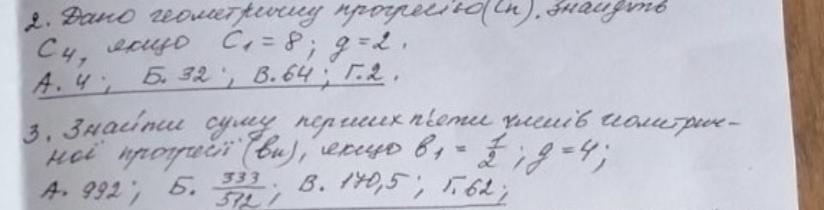 2. Дано геометричну прогресію (Cn). Знайдіть
C₄, якщо C₁ = 8; g = 2.
А. 4; Б. 32; В. 64; Г. 2.
3. Знайти суму перших п'яти членів геометрич-
ної прогресії (bn), якщо b₁ = 1/2; g = 4;
А. 992; Б. 333/512; В. 170,5; Г. 62;